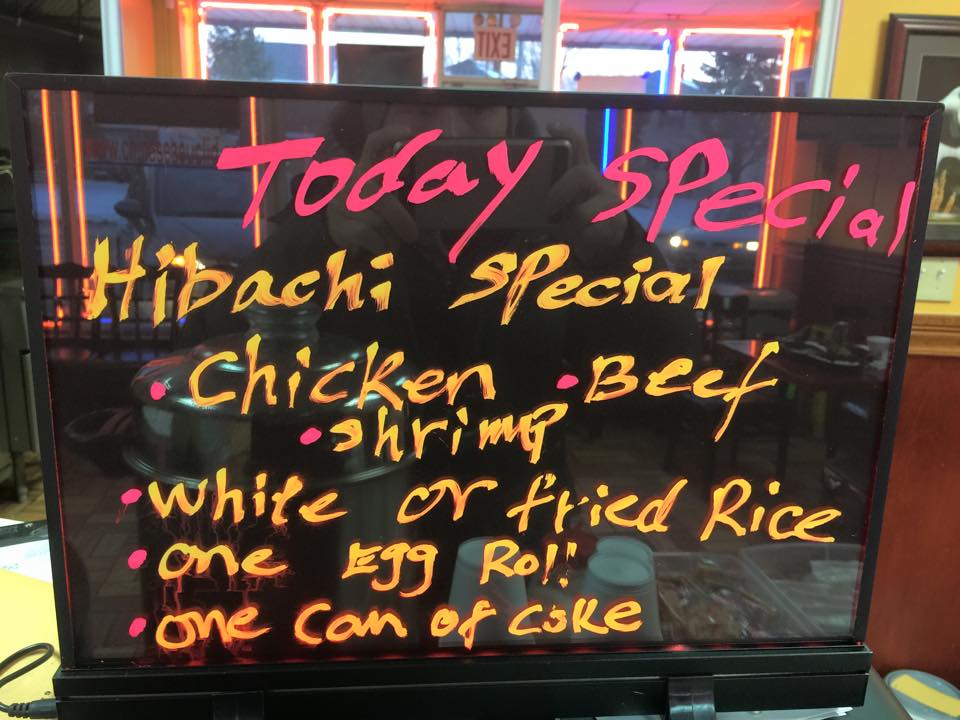 EXIT
Today Special
Hibachi Special
• Chicken • Beef
• shrimp
• white or fried Rice
• one Egg Roll
• one can of coke